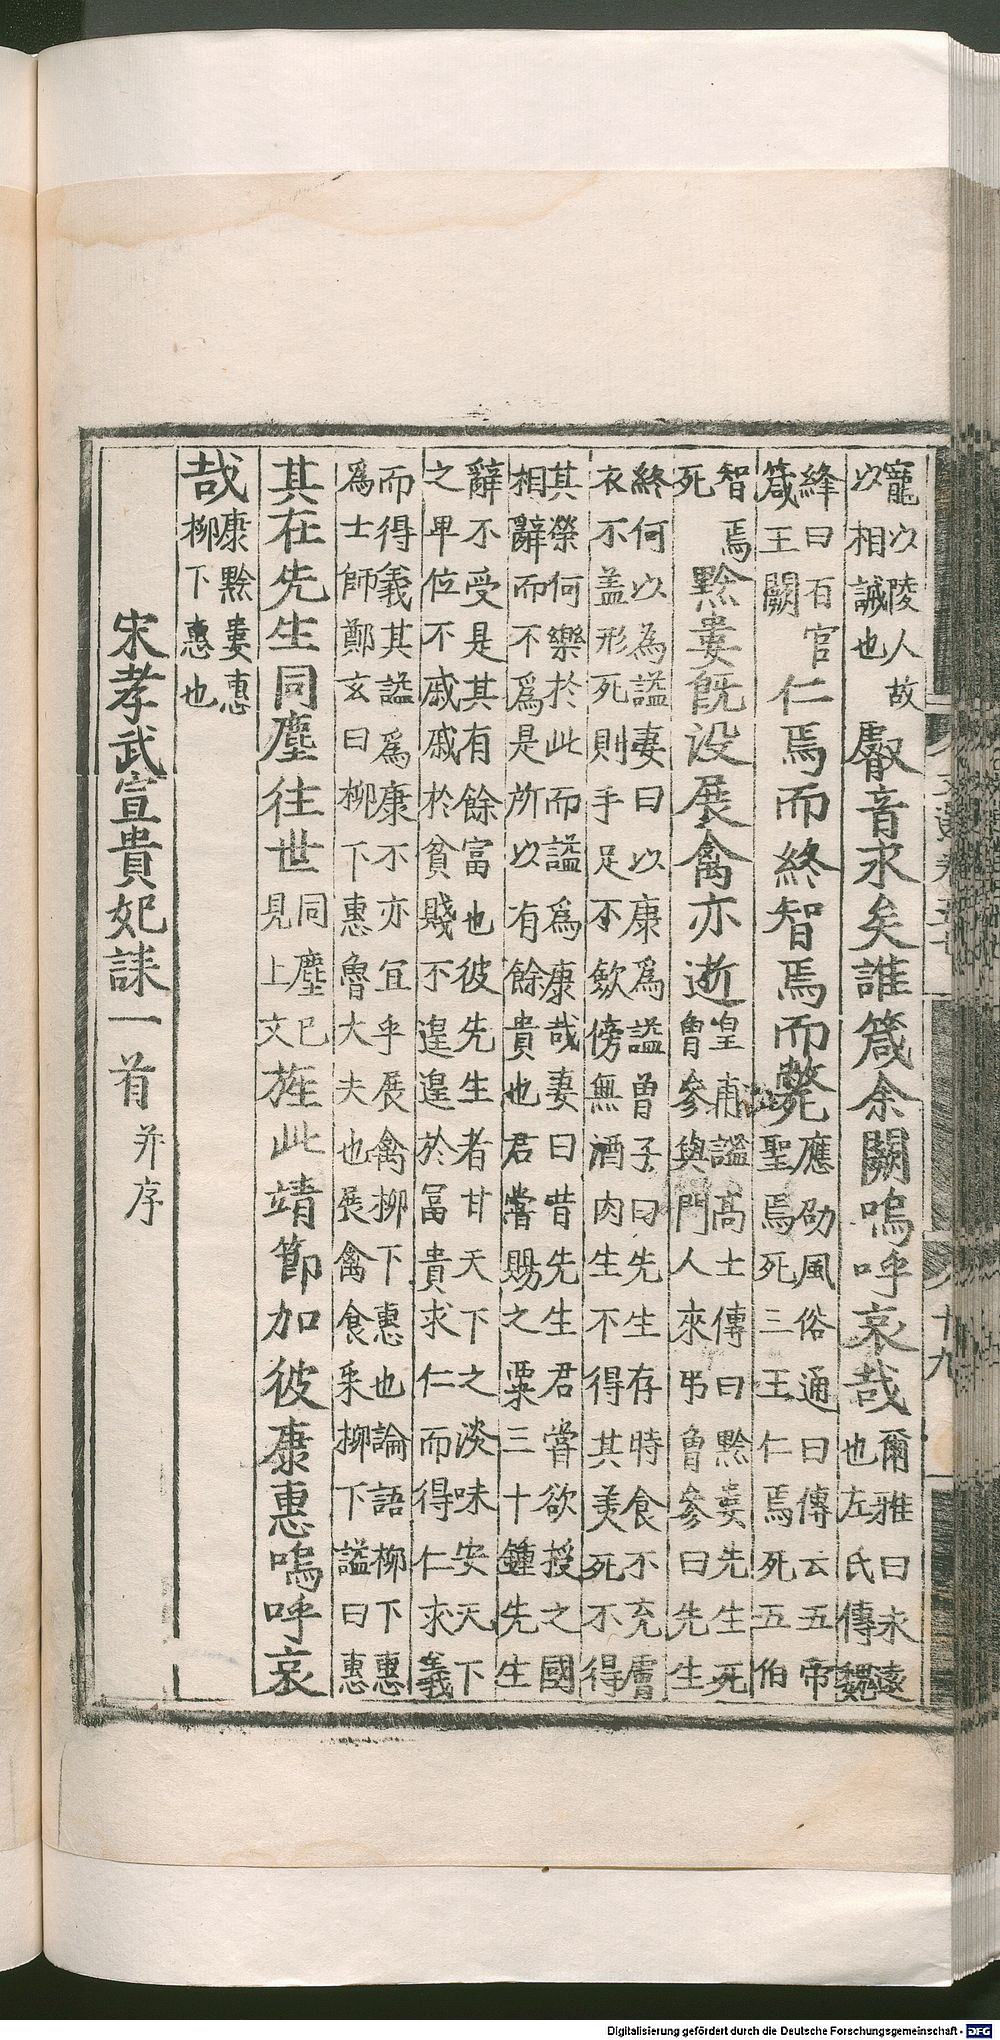 文選卷五十七 十九
寵以陵人故
以相誡也
叡音永矣誰箴余闕嗚呼哀哉
爾雅曰永遠
也左氏傳魏
絳曰百官
箴王闕
仁焉而終智焉而斃
應劭風俗通曰傳云五帝
聖焉死三王仁焉死五伯
智焉
死
黔婁既没展禽亦逝
皇甫謐高士傳曰黔婁先生死
曾參與門人來弔曾參曰先生
終何以為謚妻曰以康爲謚曽子曰先生存時食不充膚
衣不盖形死則手足不歛傍無酒肉生不得其美死不得
其榮何樂於此而謚爲康哉妻曰昔先生君嘗欲授之國
相辭而不爲是所以有餘貴也君嘗賜之粟三十鍾先生
辭不受是其有餘富也彼先生者甘天下之淡味安天下
之卑位不戚戚於貧賤不遑遑於冨貴求仁而得仁求義
而得義其謚爲康不亦宜乎展禽柳下惠也論語柳下惠
爲士師鄭玄曰柳下惠魯大夫也展禽食采柳下謚曰惠
其在先生同塵徃世
同塵已
見上文
旌此靖節加彼康惠嗚呼哀
哉
康黔婁惠
柳下惠也
宋孝武宣貴妃誄一首 并序
Digitalisierung gefördert durch die Deutsche Forschungsgemeinschaft - DFG